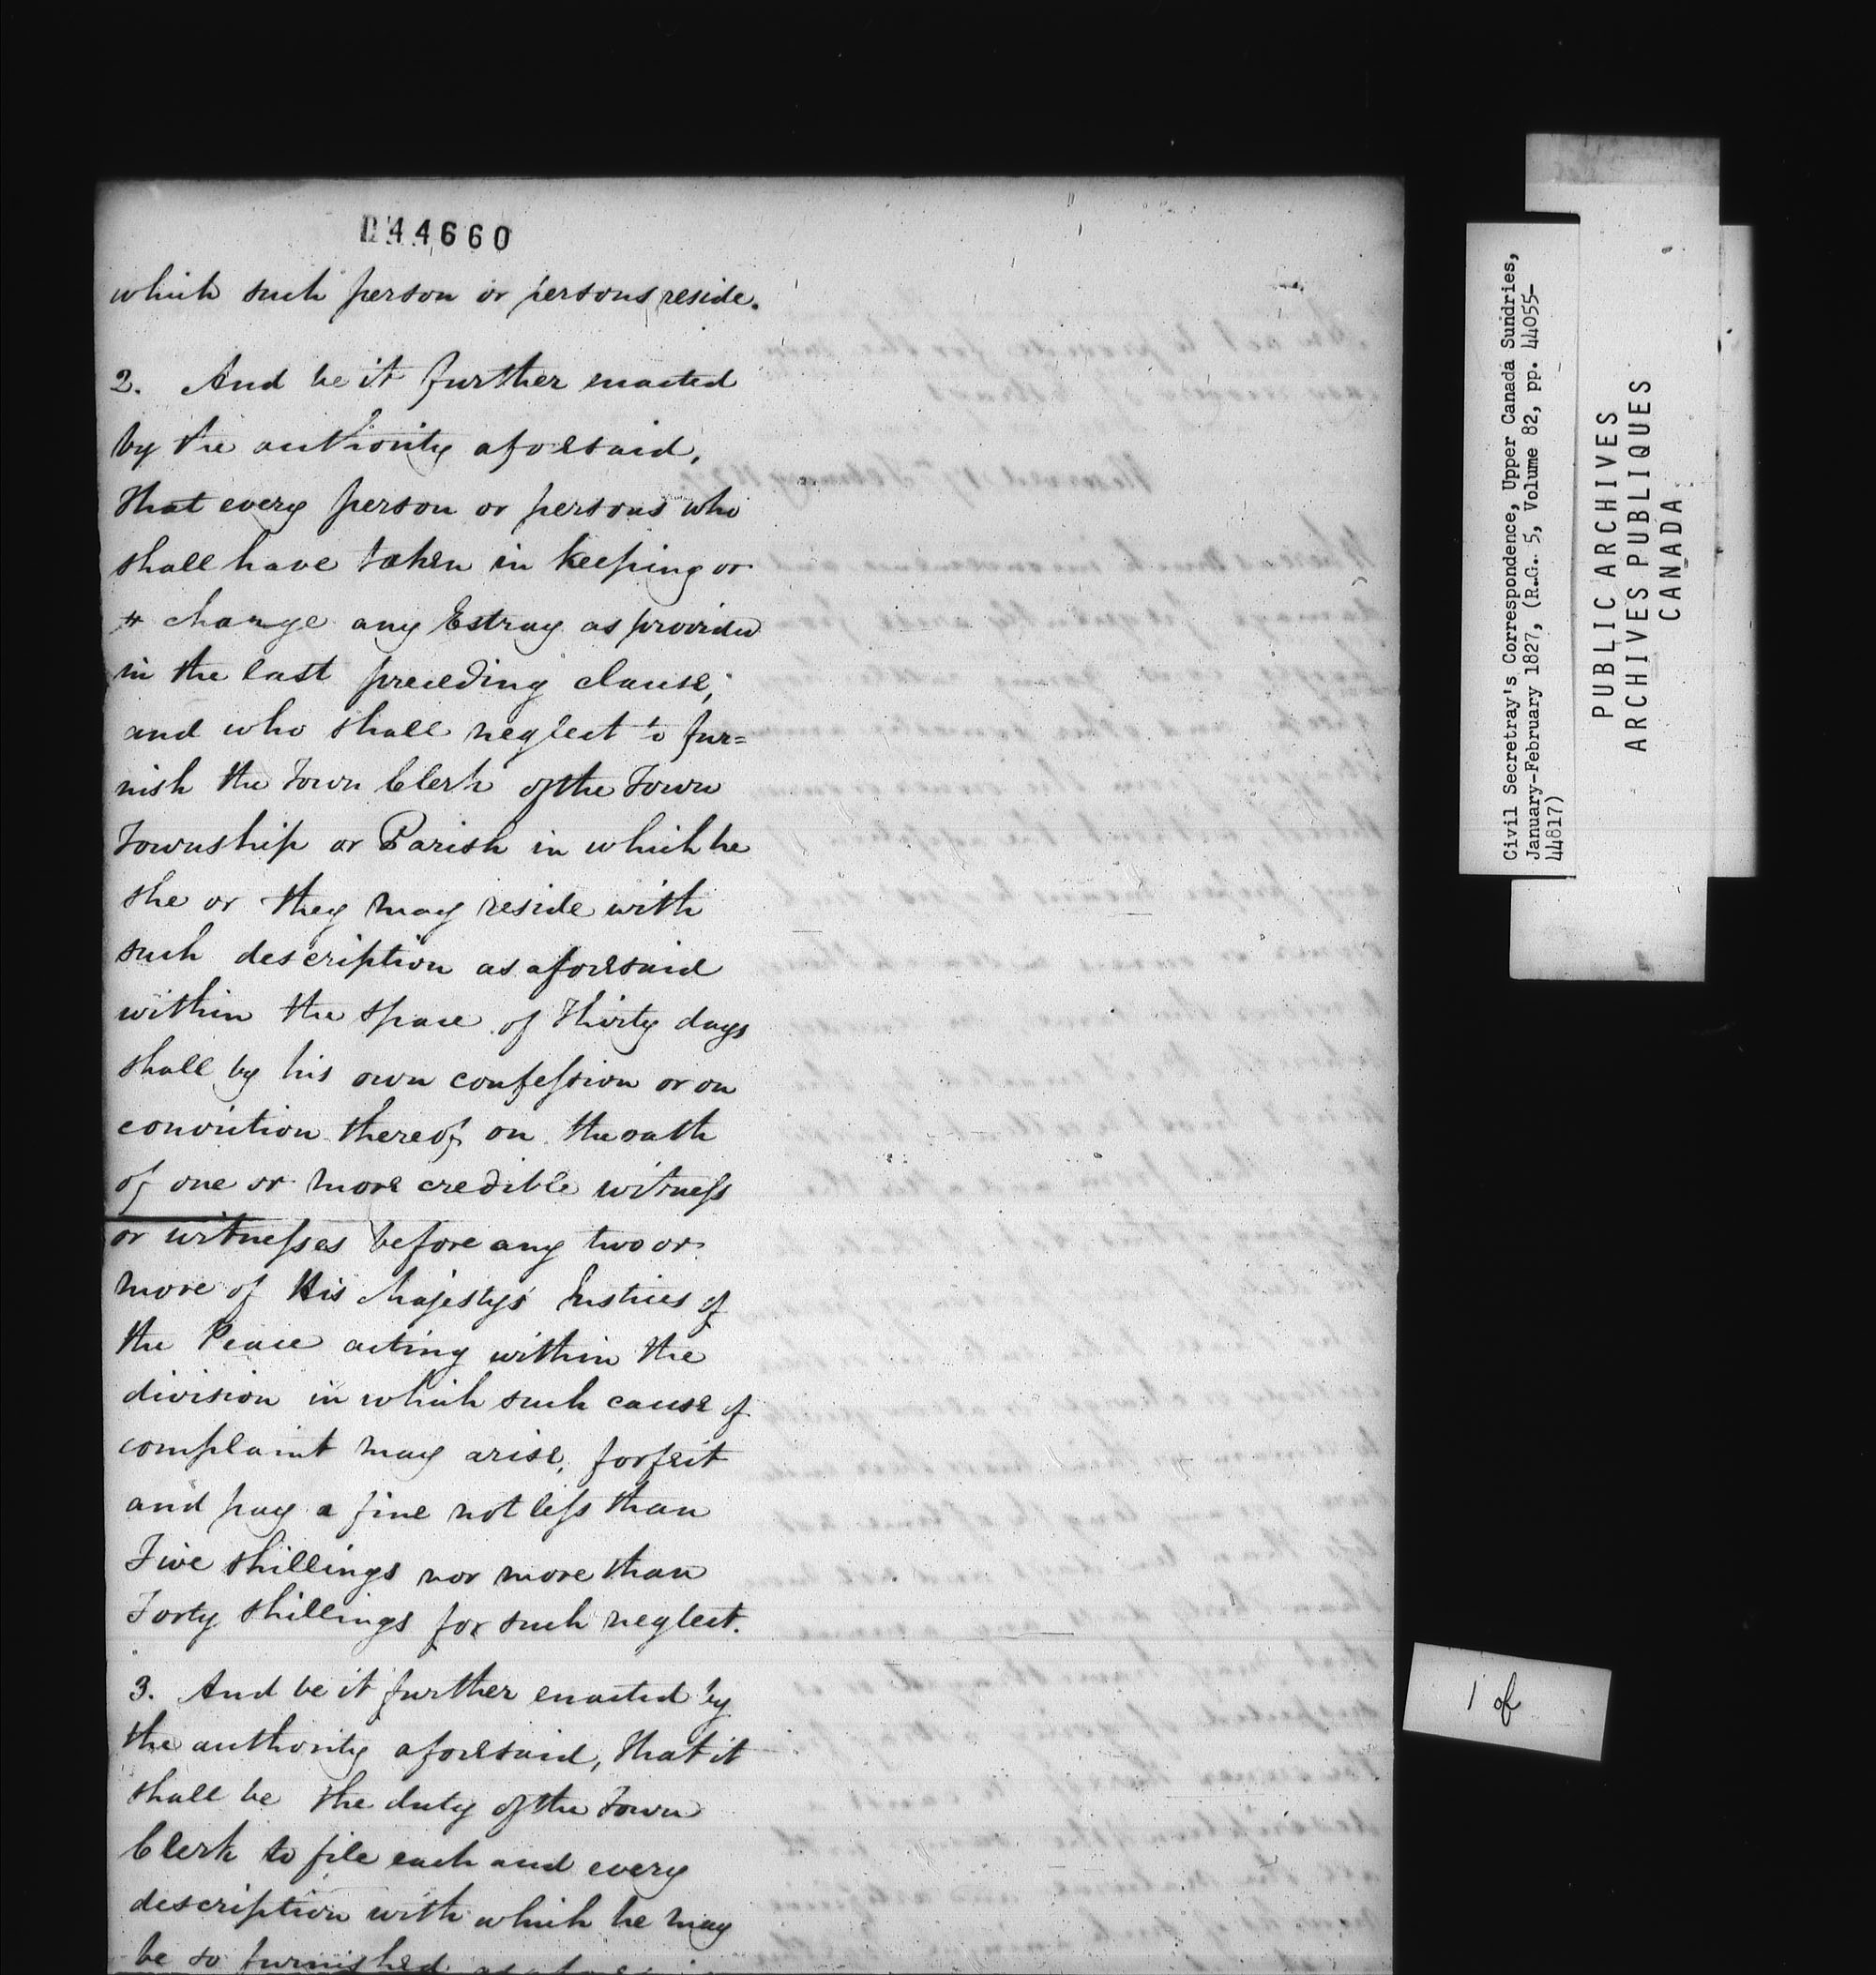 D44660
which such person or persons reside.
2. And be it further enacted
by the authority aforesaid,
that every person or persons who
shall have taken in keeping or
charge any Estray as provided
in the last preceding clause,
and who shall neglect to fur=
nish the Town Clerk of the Town
Township or Parish in which he
she or they may reside with
such description as aforesaid
within the space of thirty days
shall by his own confession or on
conviction thereof on the oath
of one or more credible witness
or witnesses before any two or
more of His Majesty's Justices of
the Peace acting within the
division in which such cause of
complaint may arise, forfeit
and pay a fine not less than
Five shillings nor more than
Forty shillings for such neglect.
3. And be it further enacted by
the authority aforesaid, that it
shall be the duty of the Town
Clerk to file each and every
description with which he may
be so furnished
Civil Secretray's Correspondence, Upper Canada Sundries,
January-February 1827, (R.G. 5, Volume 82, pp. 44055-
44817)
PUBLIC ARCHIVES
ARCHIVES PUBLIQUES
CANADA
1 of